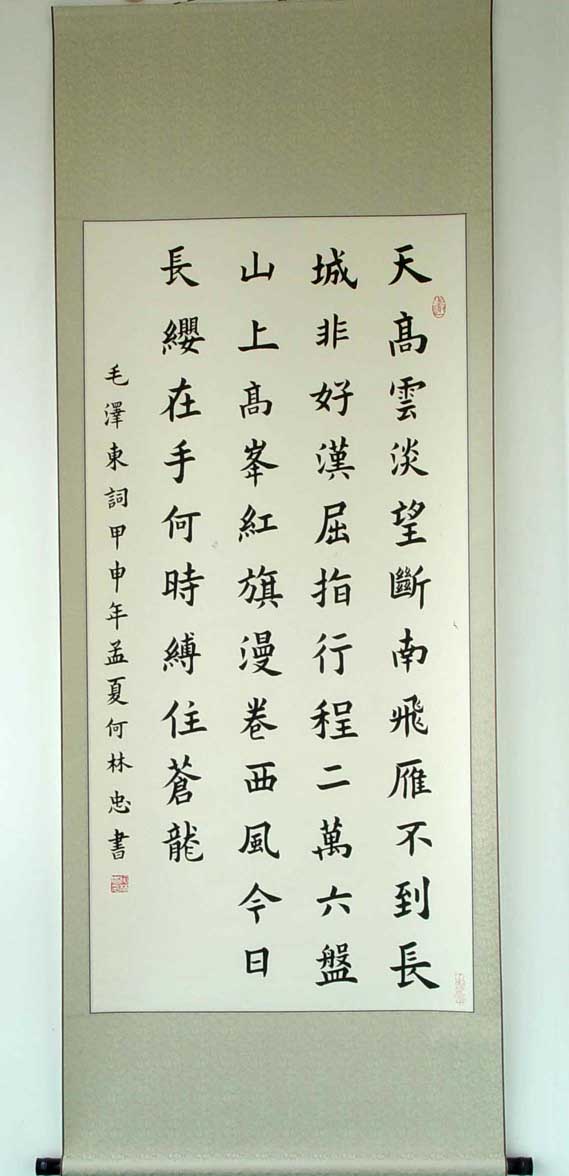 天高雲淡望斷南飛雁不到長
城非好漢屈指行程二萬六盤
山上高峯紅旗漫卷西風今日
長纓在手何時縛住蒼龍
毛澤東詞甲申年孟夏何林忠書